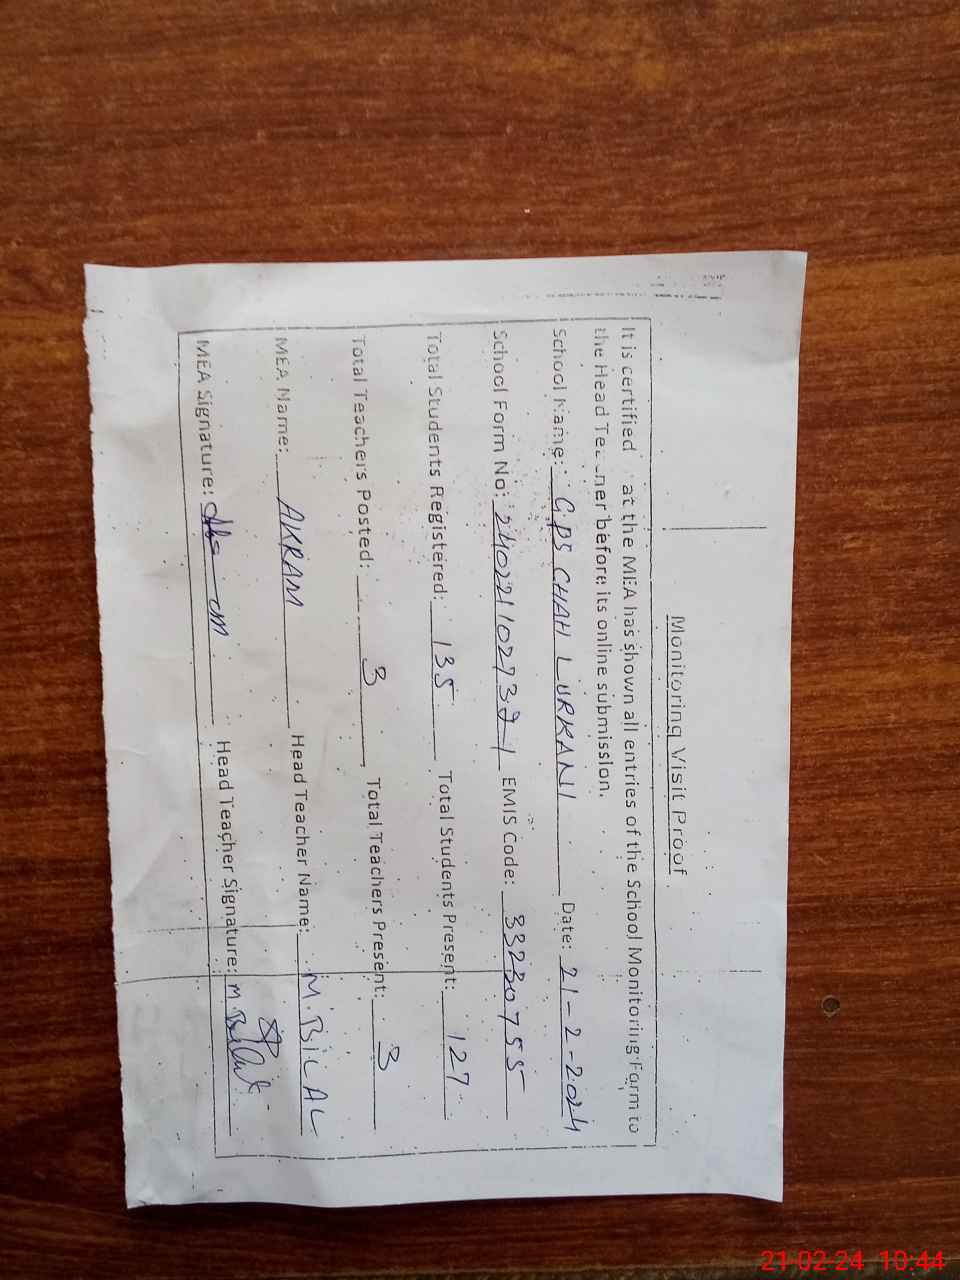 Monitoring Visit Proof
It is certified at the MEA has shown all entries of the School Monitoring Form to
the Head Te ner before its online submission.
School Name: G.PS CHAH LURKANI Date: 21-2-2024
School Form No: EMIS Code: 33230755
Total Students Registered: 135 Total Students Present: 127
Total Teachers Posted: 3 Total Teachers Present: 3
MEA Name: AKRAM Head Teacher Name: M. BILAL
MEA Signature: Head Teacher Signature: M.
21-02-24 10:44